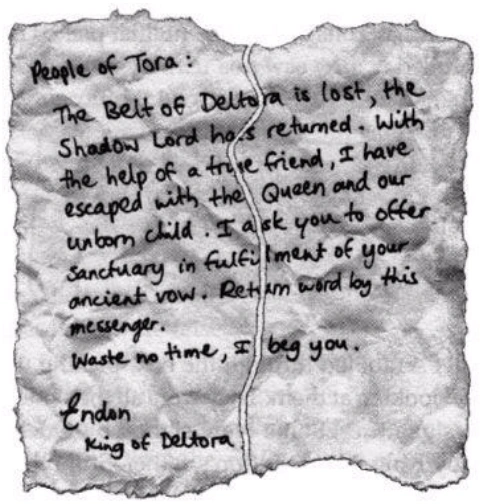 People of Tora:
The Belt of Deltora is lost, the
Shadow Lord has returned. With
the help of a true friend, I have
escaped with the Queen and our
unborn child. I ask you to offer
sanctuary in fulfilment of your
ancient vow. Return word by this
messenger.
Waste no time, I beg you.
Endon
King of Deltora